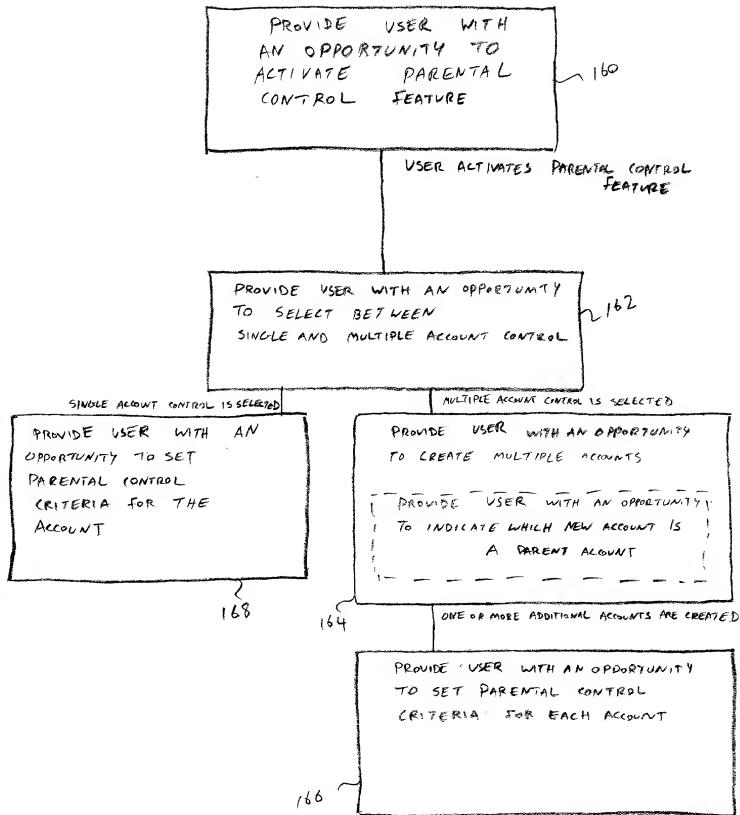 PROVIDE USER WITH
AN OPPORTUNITY TO
ACTIVATE PARENTAL
CONTROL FEATURE
160
USER ACTIVATES PARENTAL CONTROL
FEATURE
PROVIDE USER WITH AN OPPORTUNITY
TO SELECT BETWEEN
SINGLE AND MULTIPLE ACCOUNT CONTROL
162
SINGLE ACCOUNT CONTROL IS SELECTED
MULTIPLE ACCOUNT CONTROL IS SELECTED
PROVIDE USER WITH AN
OPPORTUNITY TO SET
PARENTAL CONTROL
CRITERIA FOR THE
ACCOUNT
168
PROVIDE USER WITH AN OPPORTUNITY
TO CREATE MULTIPLE ACCOUNTS
PROVIDE USER WITH AN OPPORTUNITY
TO INDICATE WHICH NEW ACCOUNT IS
A PARENT ACOUNT
164
ONE OR MORE ADDITIONAL ACCOUNTS ARE CREATED
PROVIDE USER WITH AN OPPORTUNITY
TO SET PARENTAL CONTROL
CRITERIA FOR EACH ACCOUNT
166